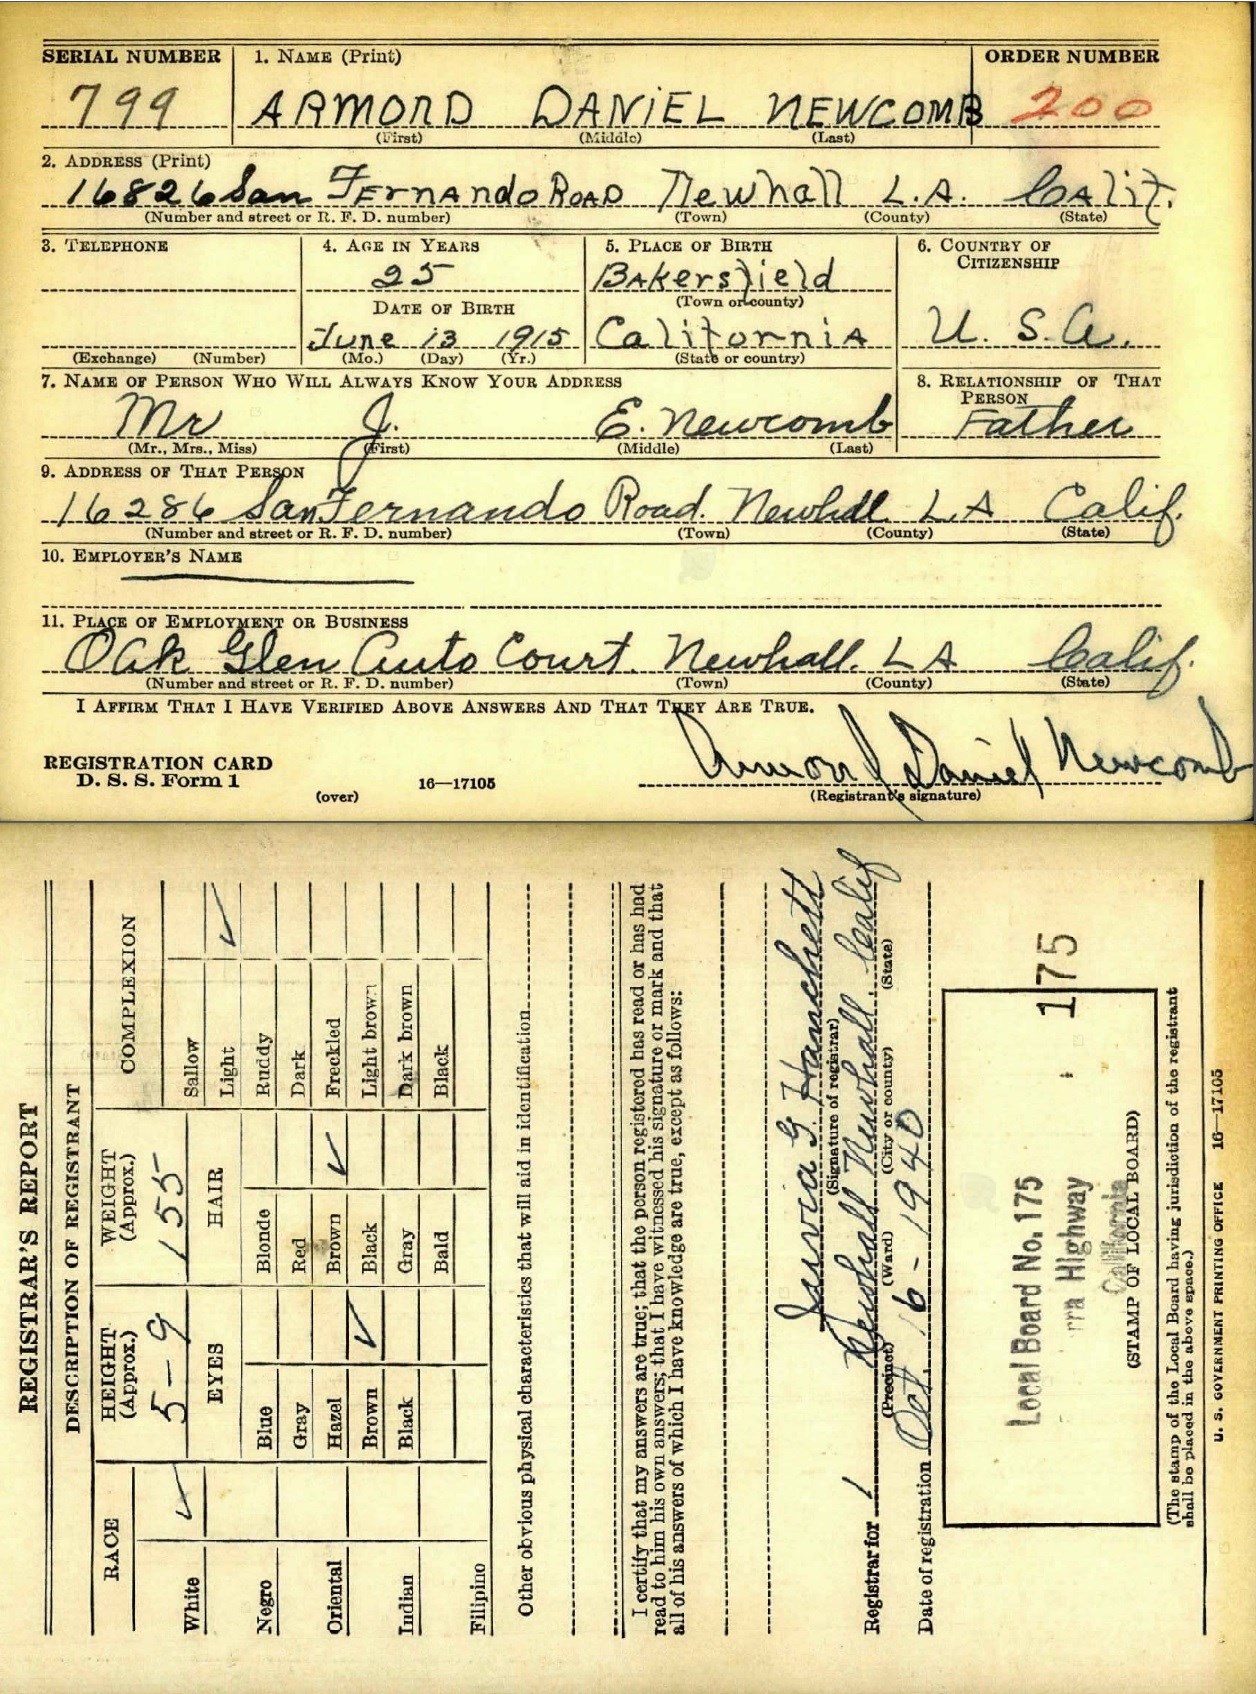 SERIAL NUMBER 1. NAME (Print) ORDER NUMBER
799 ARMOND DANIEL NEWCOMB 200
(First) (Middle) (Last)
2. ADDRESS (Print)
16826 San FErnANdo ROAD Newhall L.A. CAlif.
(Number and street or R. F. D. number) (Town) (County) (State)
3. TELEPHONE 4. AGE IN YEARS 5. PLACE OF BIRTH 6. COUNTRY OF CITIZENSHIP
25 BAkersfield
DATE OF BIRTH (Town or county)
June 13 1915 CaliforniA U. S. A.
(Exchange) (Number) (Mo.) (Day) (Yr.) (State or country)
7. NAME OF PERSON WHO WILL ALWAYS KNOW YOUR ADDRESS 8. RELATIONSHIP OF THAT PERSON
Mr J. E. Newcomb Father
(Mr., Mrs., Miss) (First) (Middle) (Last)
9. ADDRESS OF THAT PERSON
16286 San Fernando Road. Newhall LA Calif.
(Number and street or R. F. D. number) (Town) (County) (State)
10. EMPLOYER'S NAME
11. PLACE OF EMPLOYMENT OR BUSINESS
Oak Glen Auto Court. Newhall. LA Calif.
(Number and street or R. F. D. number) (Town) (County) (State)
I AFFIRM THAT I HAVE VERIFIED ABOVE ANSWERS AND THAT THEY ARE TRUE.
Armond Daniel Newcomb
REGISTRATION CARD
D. S. S. Form 1 (over) 16—17105 (Registrant's signature)
REGISTRAR'S REPORT
DESCRIPTION OF REGISTRANT
RACE HEIGHT (Approx.) WEIGHT (Approx.) COMPLEXION
5-9 155
White ✓ EYES HAIR Sallow
Light ✓
Negro Blue Blonde Ruddy
Gray Red Dark
Oriental Hazel Brown ✓ Freckled
Brown ✓ Black Light brown
Indian Black Gray Dark brown
Bald Black
Filipino
Other obvious physical characteristics that will aid in identification
I certify that my answers are true; that the person registered has read or has had
read to him his own answers; that I have witnessed his signature or mark and that
all of his answers of which I have knowledge are true, except as follows:
G. Hanchett
(Signature of registrar)
Registrar for 1 Newhall Newhall. Calif
(Precinct) (Ward) (City or county) (State)
Date of registration Oct. 16-1940
Local Board No. 175 175
rra Highway
California
(STAMP OF LOCAL BOARD)
(The stamp of the Local Board having jurisdiction of the registrant
shall be placed in the above space.)
U. S. GOVERNMENT PRINTING OFFICE 16—17105